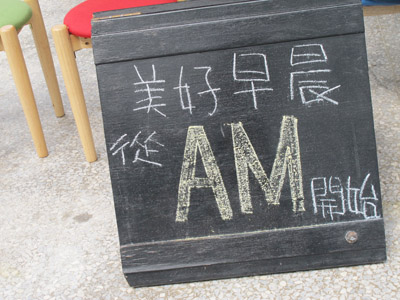 美好早晨
從AM開始